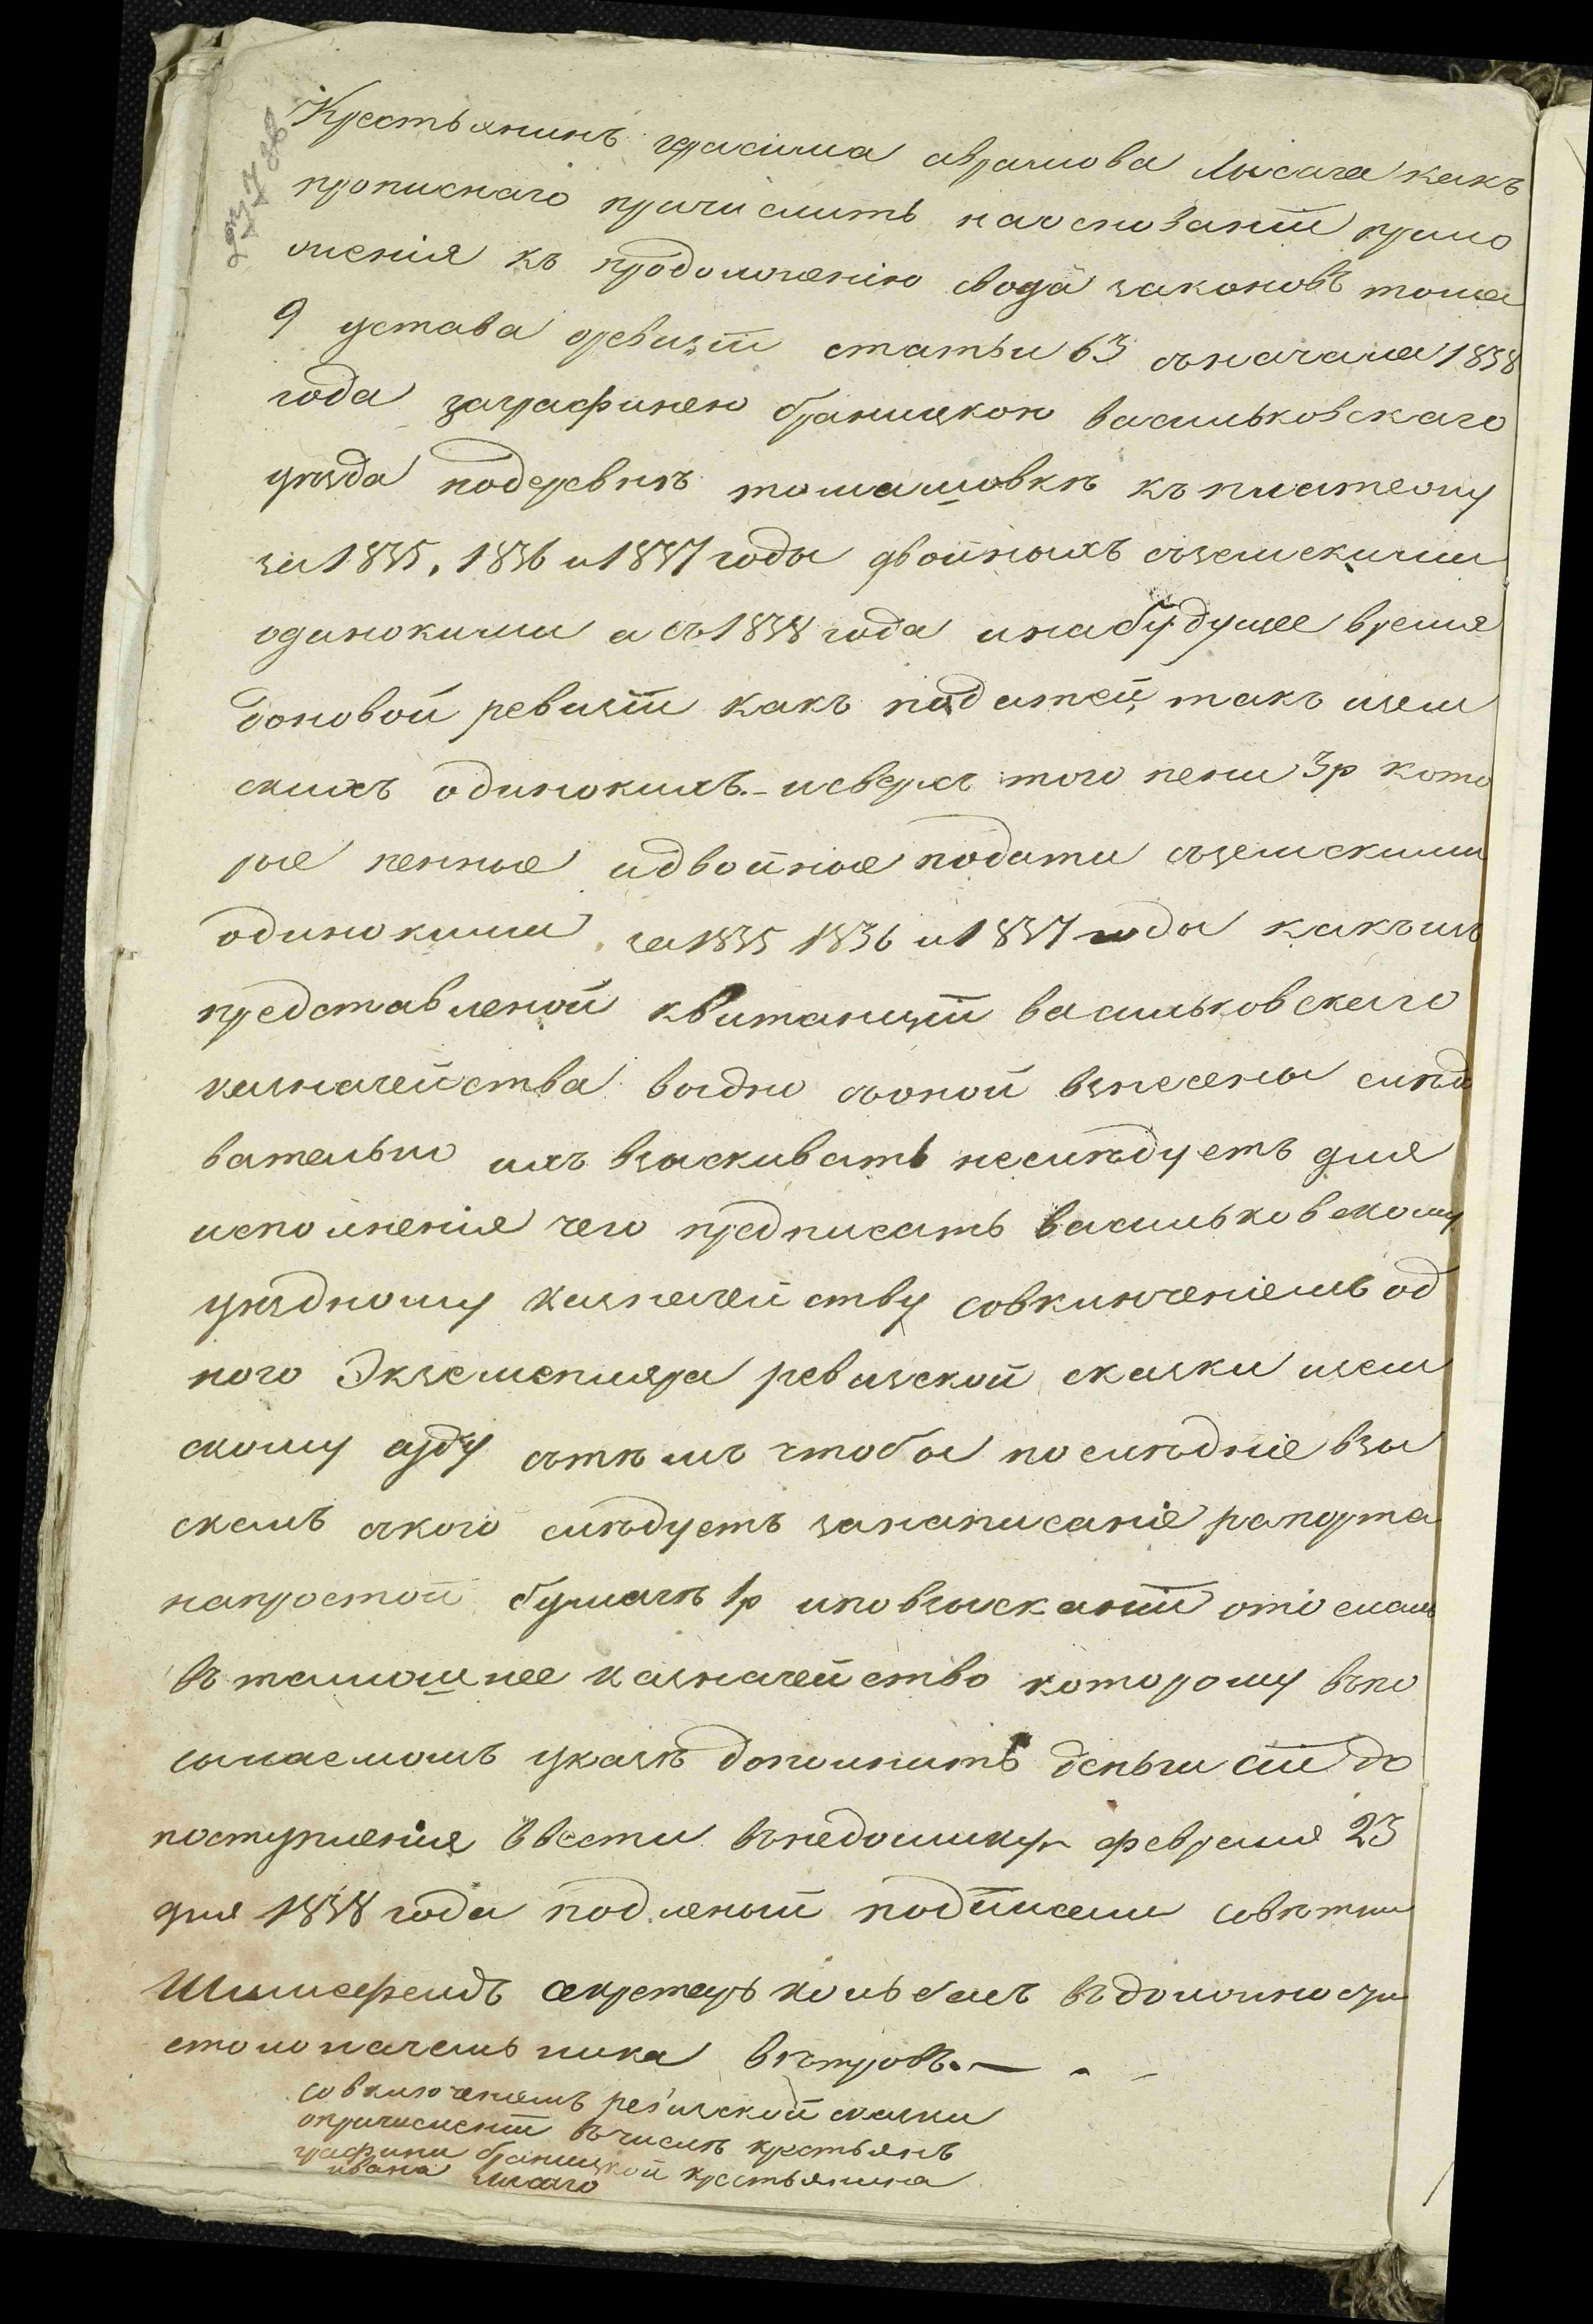 Крестьянинъ герасима аврамова Лысага какъ
прописнаго причислить наоснованіи прило
женія къ продолженію свода законовъ тома
9 устава оревизіи статьи 63 сначала 1838
года заграфинею браницкою васильковскаго
уѣзда подеревнѣ томашовкѣ къ платежу
за 1835, 1836 и 1837 годы двойныхъ сземскими
одинокими а съ 1838 года инабудущее время
доновой ревизіи какъ податей, такъ изем
скихъ одинокихъ. - исверхъ того пени 3р кото
рые пенные идвойные подати сземскими
одинокими за 1835 1836 и 1837 годы какъ изъ
представленой квитанціи васильковскаго
казначейства выдно съоной взнесены слѣдо
вательно ихъ взыскивать неслѣдуетъ для
исполненія чего предписать васильковскому
уѣздному казначейству совключеніемъ од
ного Экземпляра ревизской сказки изем
скому суду стѣмъ чтобы послѣдніе взы
скалъ ского слѣдуетъ занаписаніе рапорта
напростой бумагѣ 1р иповзысканіи отослалъ
въ тамошнее казначейство которому въпо
сылаемомъ указѣ дополнить деньги сіи до
поступленія ввести внедоимку февраля 23
дня 1838 года подленый подписали совѣтни
секретарь вдолжности
столоначальника вѣтровъ. —
совключеніемъ ревизской сказки
опричисленіи въчислѣ крестьянъ
графини браницкой крестьянина
ивана Лысаго